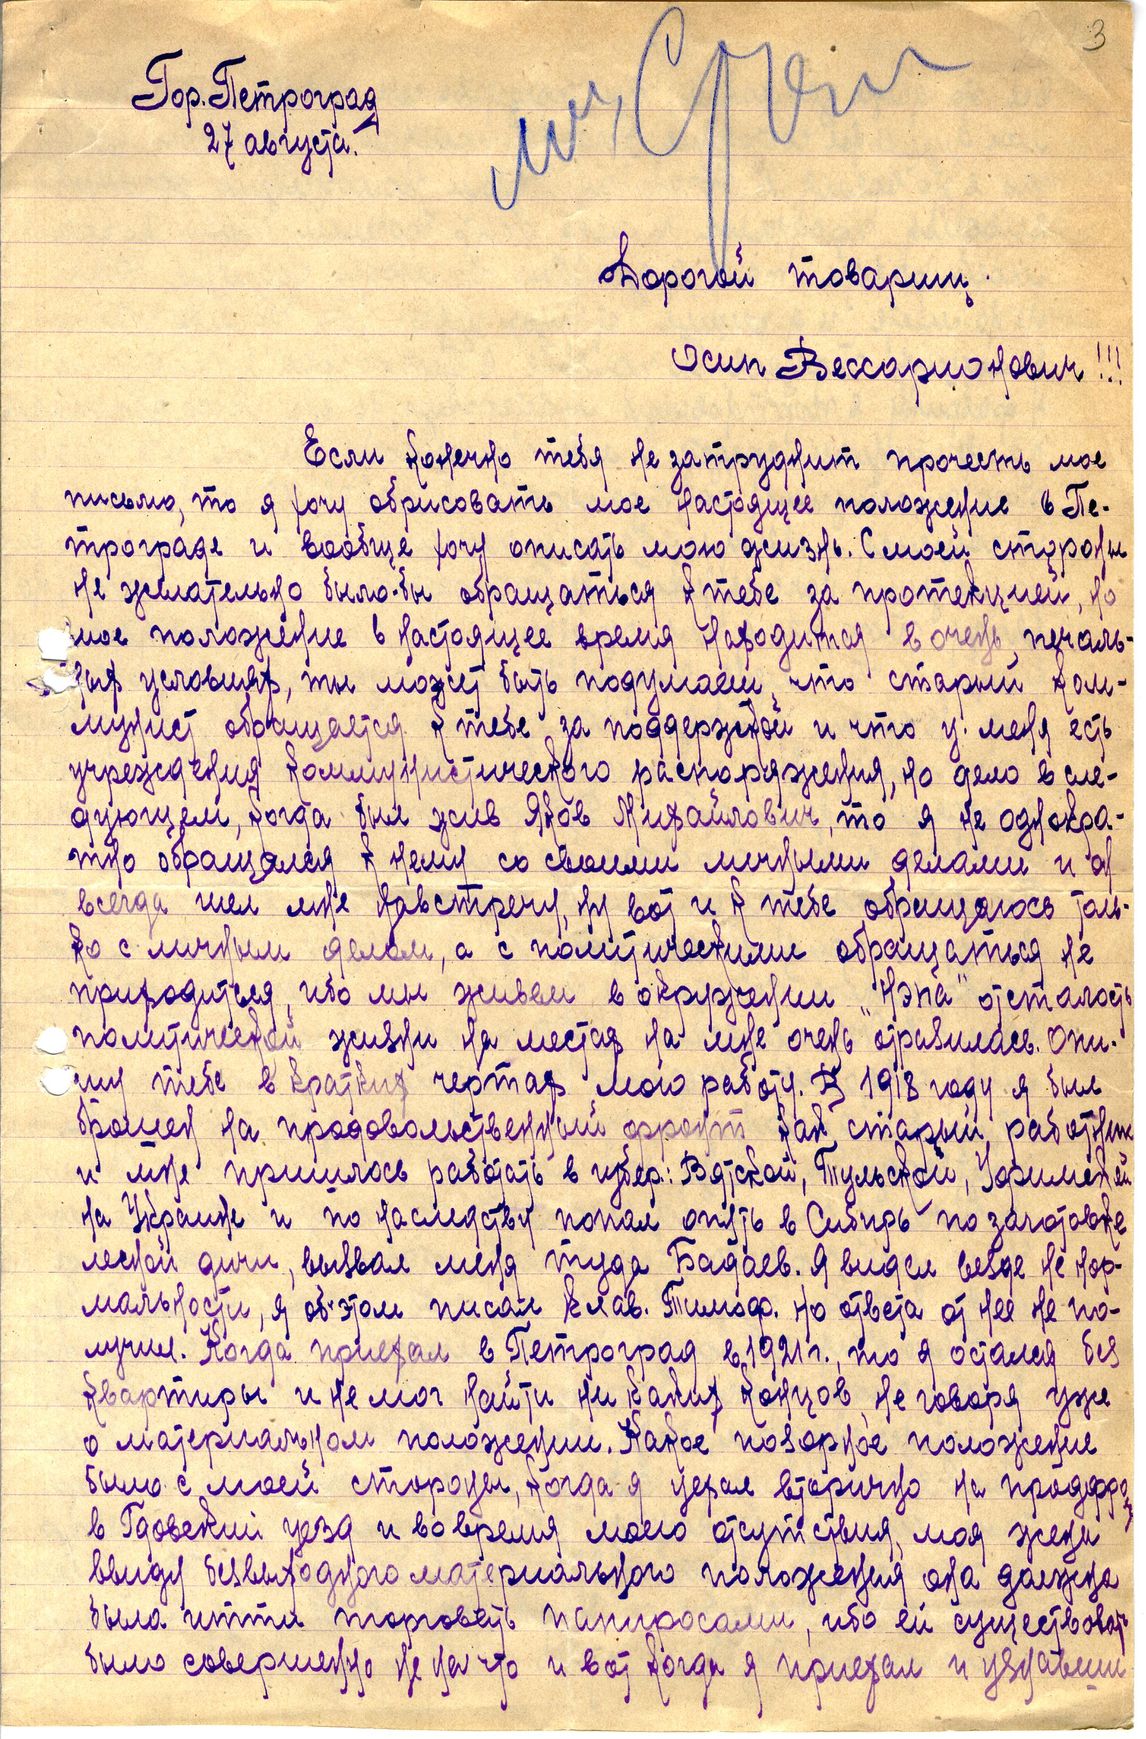 3
Гор. Петроград
27 августа.
Дорогой товарищ
Осип Вессарионович!!!
Если конечно тебя не затруднит прочесть мое
письмо, то я хочу обрисовать мое настоящее положение в Пе-
трограде и вообще хочу описать мою жизнь. С моей стороны
не желательно было-бы обращаться к тебе за протекцией, но
мое положение в настоящее время находится в очень печаль-
ных условиях, ты может быть подумаеш, что старый ком-
мунист обращается к тебе за поддержкой и что у меня есть
учреждения коммунистического распоряжения, но дело в сле-
дующем, когда был жив Яков Михайлович, то я не однокра-
тно обращался к нему со своими личными делами и он
всегда шел мне навстречу, ну вот и к тебе обращаюсь толь-
ко с личным делом, а с политическими обращаться не
приходиться, ибо мы живем в окружении "Нэпа" отсталость
политической жизни на местах на мне очень отразилась. Опи-
шу тебе в кратких чертах мою работу. В 1918 году я был
брошен на продовольственный фронт как старый работник
и мне пришлось работать в губер.: Вятской, Тульской, Уфимской
на Украине и по наследству попал опять в Сибирь по заготовке
лесной дичи, вызвал меня туда Бадаев. Я видел везде не нор-
мальности, я об этом писал Клав. Тимоф. но ответа от нее не по-
лучил. Когда приехал в Петроград в 1921 г., то я остался без
квартиры и не мог найти ни каких концов, не говоря уже
о материальном положении. Какое позорное положение
было с моей стороны, когда я уехал вторично на продфро
в Гдовский уезд и во время моего отсутствия, моя жена
ввиду безвыходного материального положения она должна
была итти торговать папиросами, ибо ей существовать
было совершенно не на что и вот когда я приехал и узнавши